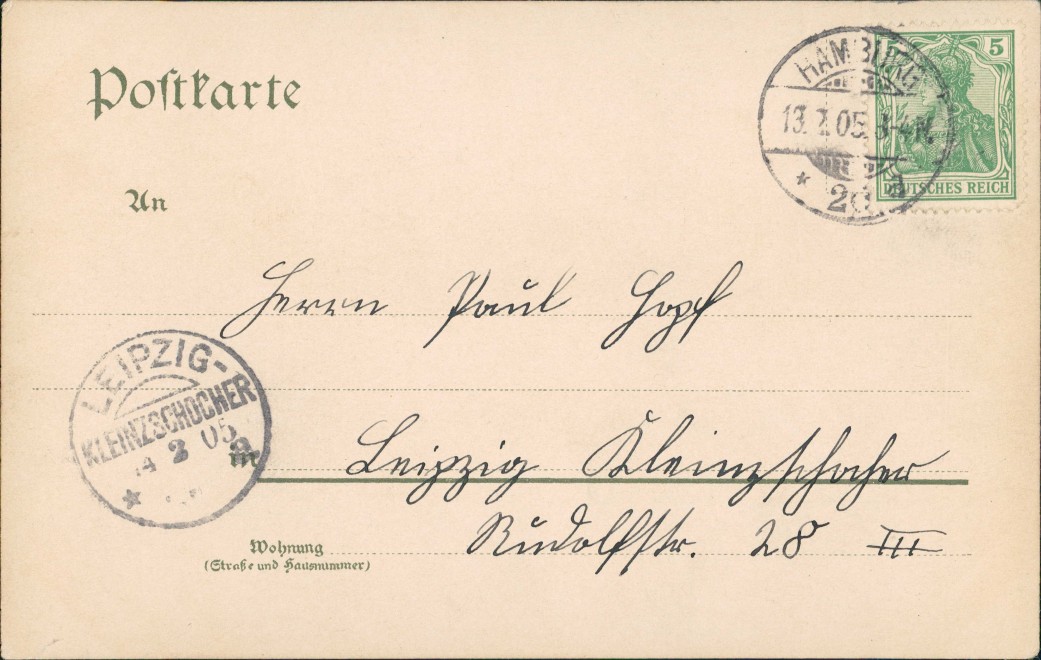 Postkarte
5
HAMBURG
13. 2. 05. 3-4 N.
* 20
DEUTSCHES REICH
An
Herrn Paul Hopf
LEIPZIG-
KLEINZSCHOCHER
14 2 05
*
in
Leipzig Kleinzschocher
Rudolfstr. 28 III
Wohnung
(Straße und Hausnummer)